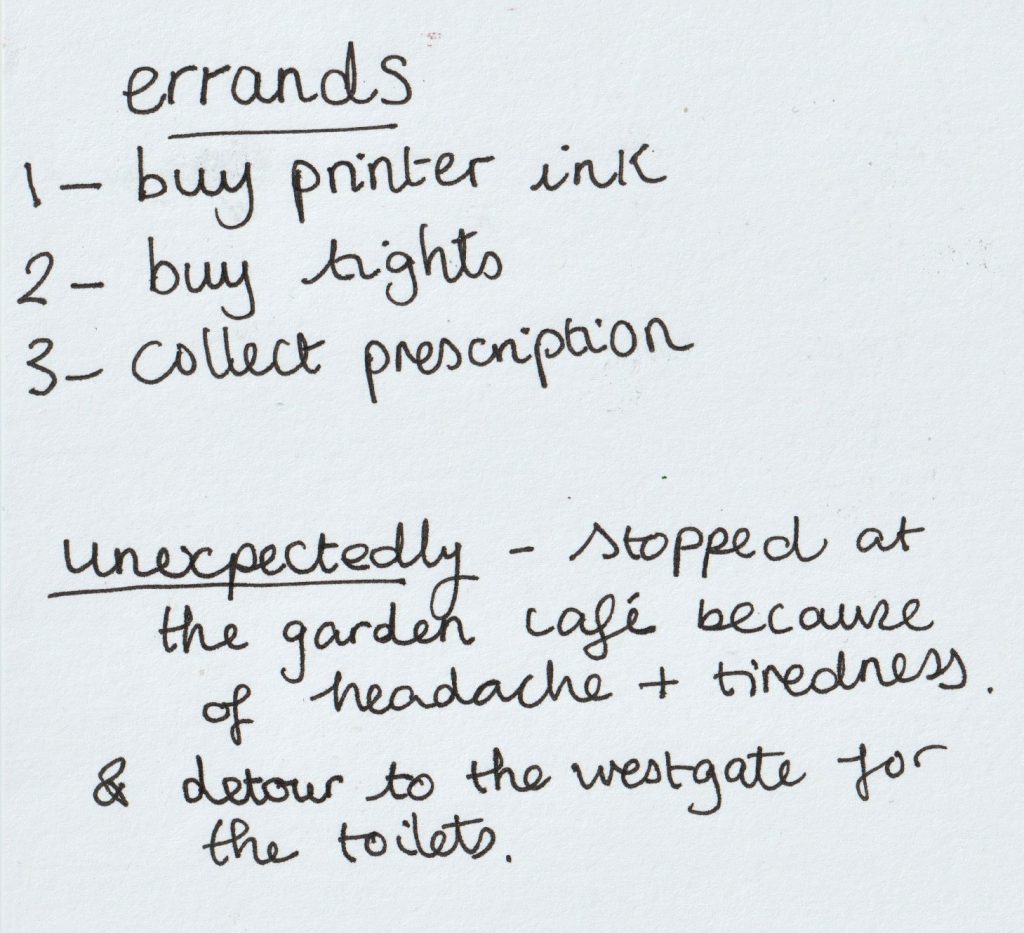 errands
1 - buy printer ink
2 - buy tights
3 - collect prescription
unexpectedly - stopped at
the garden café because
of headache + tiredness.
& detour to the westgate for
the toilets.